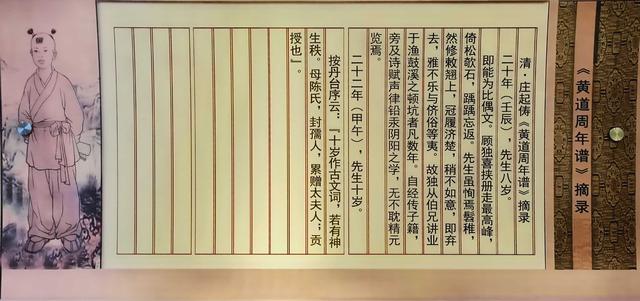 《黄道周年谱》摘录
清·庄起俦《黄道周年谱》摘录
二十年（壬辰），先生八岁。
即能为比偶文。顾独喜挟册走最高峰，
倚松欹石，踽踽忘返。先生虽恂焉髫稚，
然修敕翘上，冠履济楚，稍不如意，即弃
去，雅不乐与侪俗等夷。故独从伯兄讲业
于渔鼓溪之顿坑者凡数年。自经传子籍，
旁及诗赋声律铅汞阴阳之学，无不耽精元
览焉。
二十二年（甲午），先生十岁。
按丹台序云：『十岁作古文词，若有神
生秩。母陈氏，封孺人，累赠太夫人；贡
授也』。